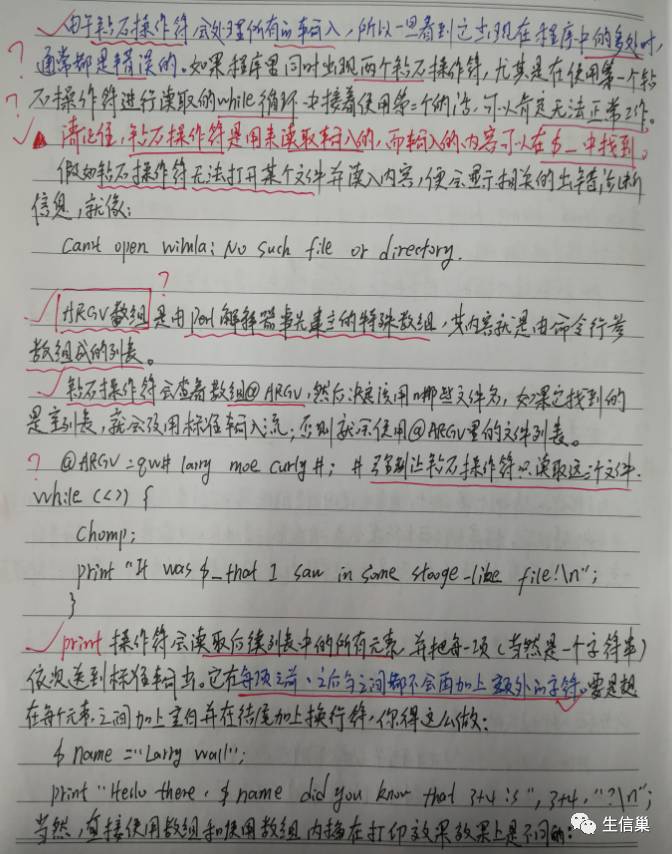 ✓由于钻石操作符会处理所有的输入,所以一旦看到它出现在程序中的多处时,
? 通常都是错误的。如果程序里同时出现两个钻石操作符,尤其是在使用第一个钻
? 石操作符进行读取的while循环中接着使用第二个的话,可以肯定无法正常工作。
✓ 请记住,钻石操作符是用来读取输入的,而输入的内容可以在$_中找到。
假如钻石操作符无法打开某个文件并读入内容,便会显示相关的出错诊断
信息,就像:
Can't open wimla: No such file or directory.
?
✓ ARGV数组是由perl解释器事先建立的特殊数组,其内容就是由命令行参
数组成的列表。
✓钻石操作符会查看数组@ARGV,然后决定该用哪些文件名,如果它找到的
是空列表,就会改用标准输入流;否则就会使用@ARGV里的文件列表。
? @ARGV = qw# larry moe curly #; # 强制让钻石操作符只读取这三个文件.
while (<>) {
chomp;
print "It was $_ that I saw in some stooge-like file!\n";
}
✓print操作符会读取后续列表中的所有元素,并把每一项(当然是一个字符串)
依次送到标准输出。它在每项之前、之后与之间都不会再加上额外的字符。要是想
在每个元素之间加上空白并在结尾加上换行符,你得这么做:
$ name = "Larry wall";
print "Hello there, $ name did you know that 3+4 is", 3+4, "?\n";
当然,直接使用数组和使用数组内插在打印效果效果上是不同的:
生信巢